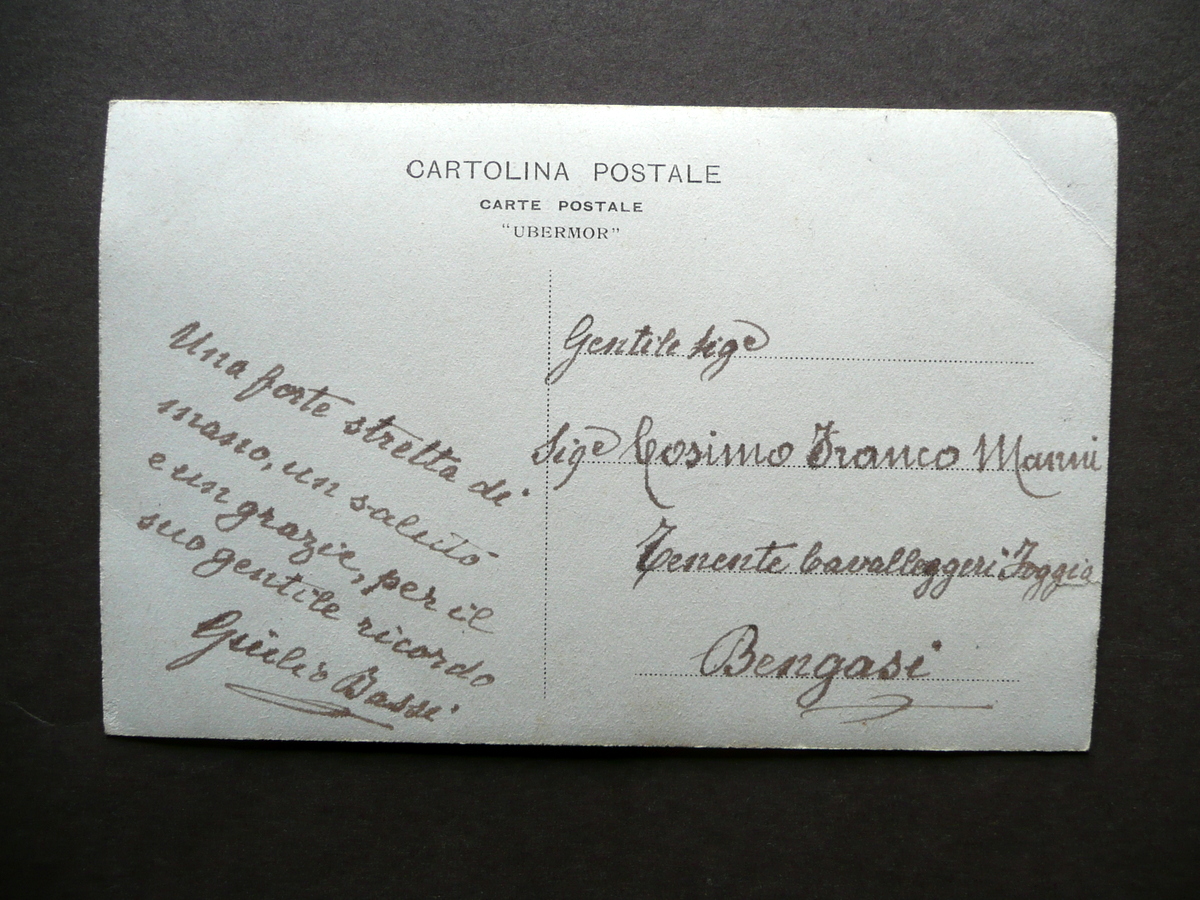 CARTOLINA POSTALE
CARTE POSTALE
"UBERMOR"
Una forte stretta di
mano, un saluto
e un grazie, per il
suo gentile ricordo
Giulio Bassi
Gentile Sigᵉ
Sigᵉ Cosimo Franco Manni
Tenente Cavalleggeri Foggia
Bengasi